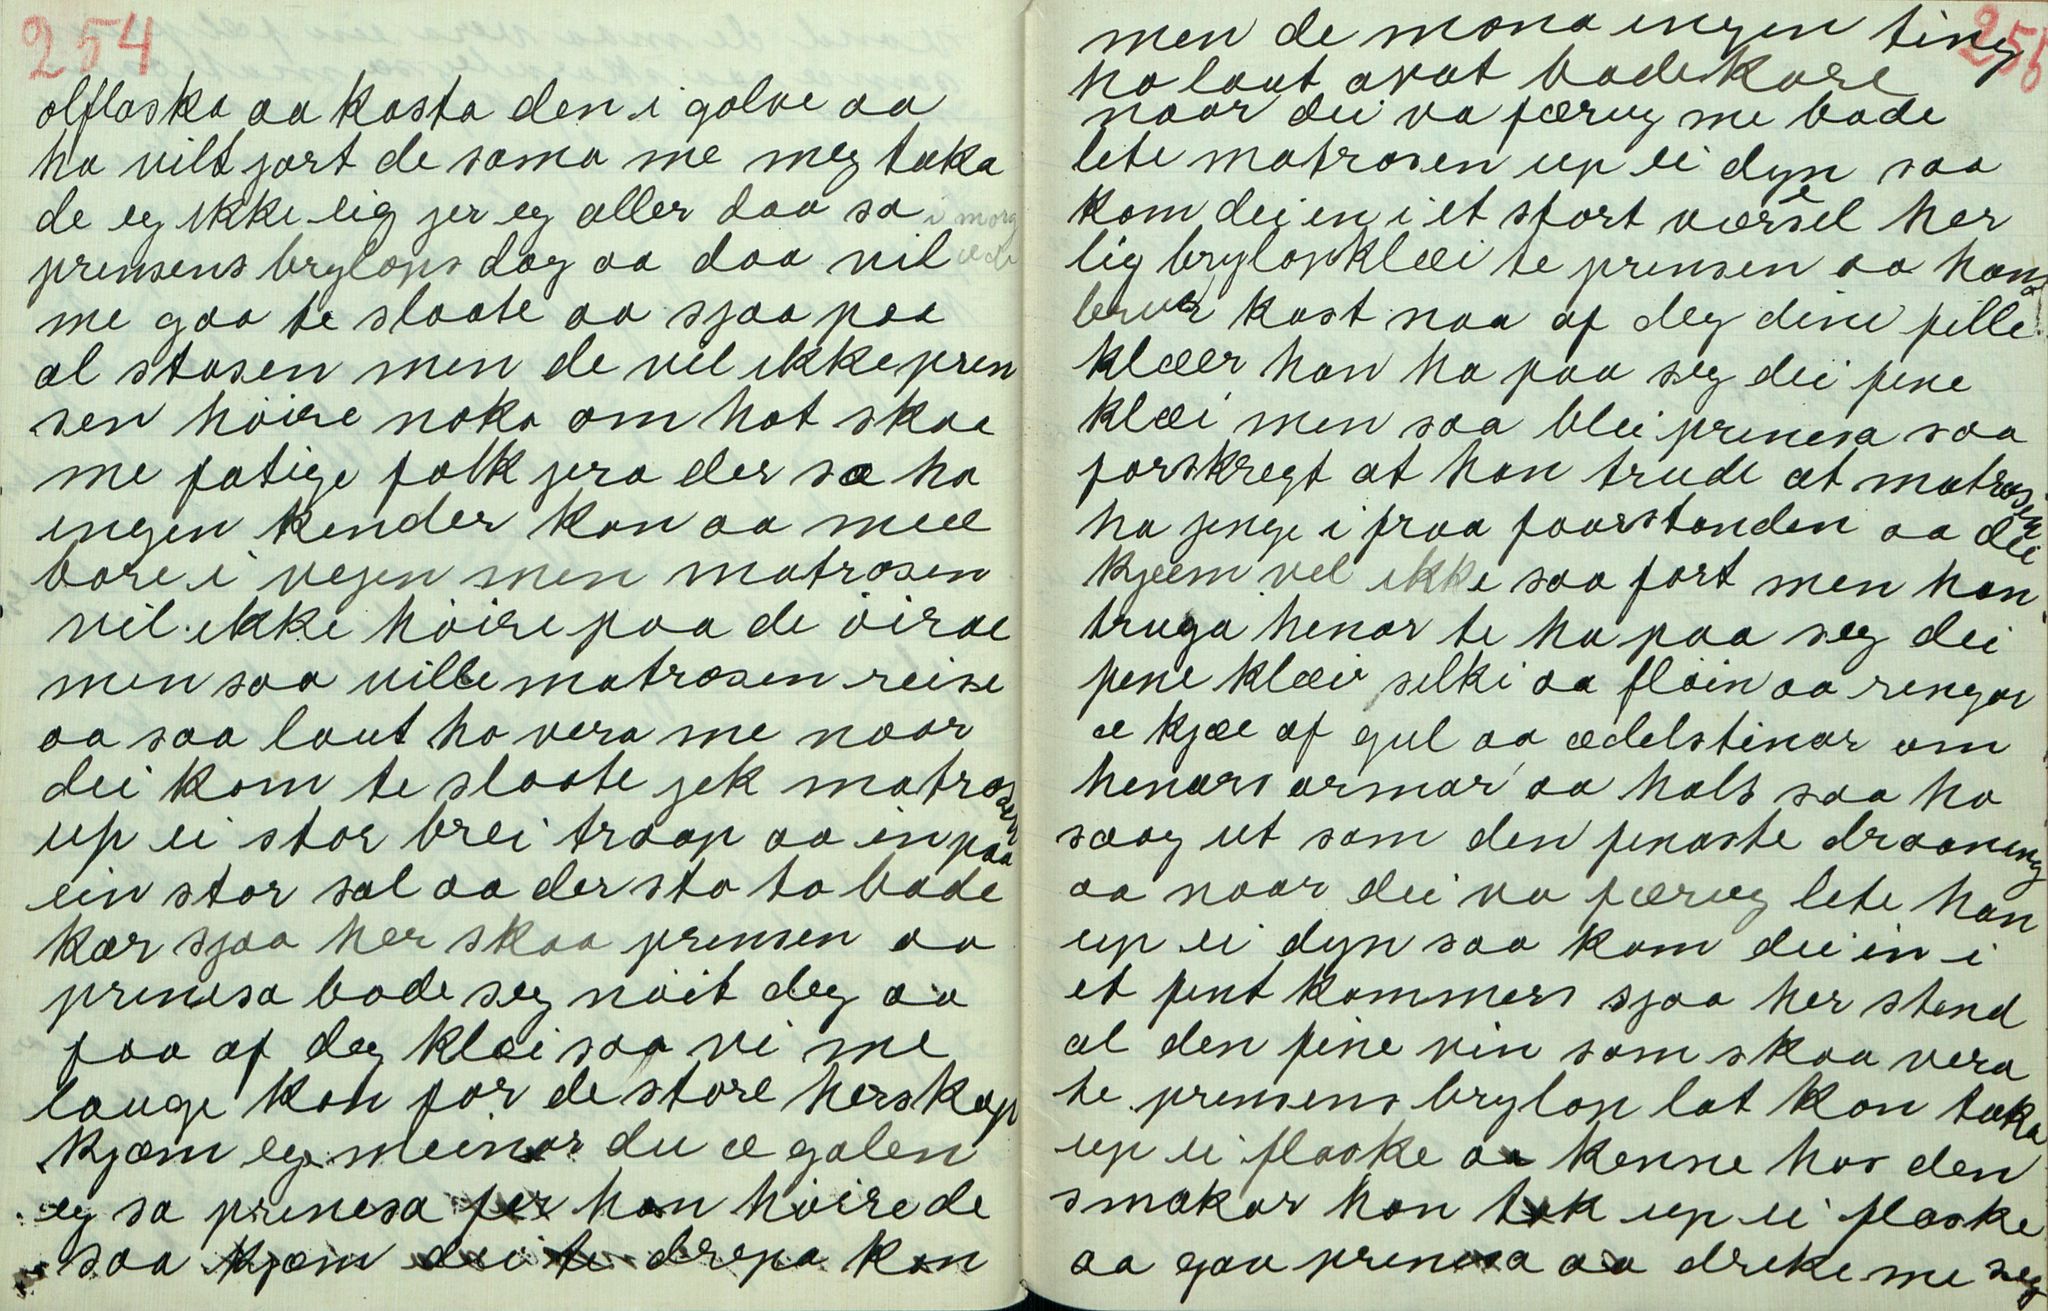 254
olflaska aa kasta den i golve aa
ha vilt jort de sama me meg taka
de eg ikke lig jer eg aller daa sa i morg
prinsens brylops dag aa daa vil
me gaa te slaate aa sjaa paa
al stasen men de vil ikke prin
sen höire noka om hat skaa
me fatige folk jera der sa ha
ingen kender kan aa mee
bare i vejen men matrosen
vil ikke höire paa de öiraa
men saa ville matrosen reise
aa saa laut ho vera me naar
dei kom te slaate jek matrosen
up ei stor brei trap aa in paa
ein stor sal aa der sto to bade
kar sjaa her skaa prinsen aa
prinesa bade seg nöit deg aa
faa af deg klæi saa vi me
lauge kan for de store herskap
kjæm eg meinar du æ galen
eg sa prinesa jer han höire de
saa kjæm dei te drepa kan
255
men de mona ingen ting
ho laut avat badekare
naar dei va færug me bade
lete matrosen up ei dyn saa
kom dei en i et stort værsel her
lig brylopklæi te prinsen aa hans
bruer kast naa af deg dine fille
klæer han ha paa seg dei pene
klæi men saa blei prinesa saa
forskregt at han trude at matrosen
ha jenge i fraa faarstanden aa dei
kjæem vel ikke saa fort men han
truga henar te ha paa seg dei
pene klæer silki aa flöin aa ringar
æ kjæe af gul aa ædelstinar om
henars armar aa hals saa ho
saag ut som den finaste draaning
aa naar dei va færug lete han
up ei dyn saa kom dei in i
et fint kammers sjaa her stend
al den fine vin som skaa vera
te prinsens brylop lat kan taka
up ei flaske aa kenne hos den
smakar han tok up ei flaske
aa gav prinesa aa dreke me seg